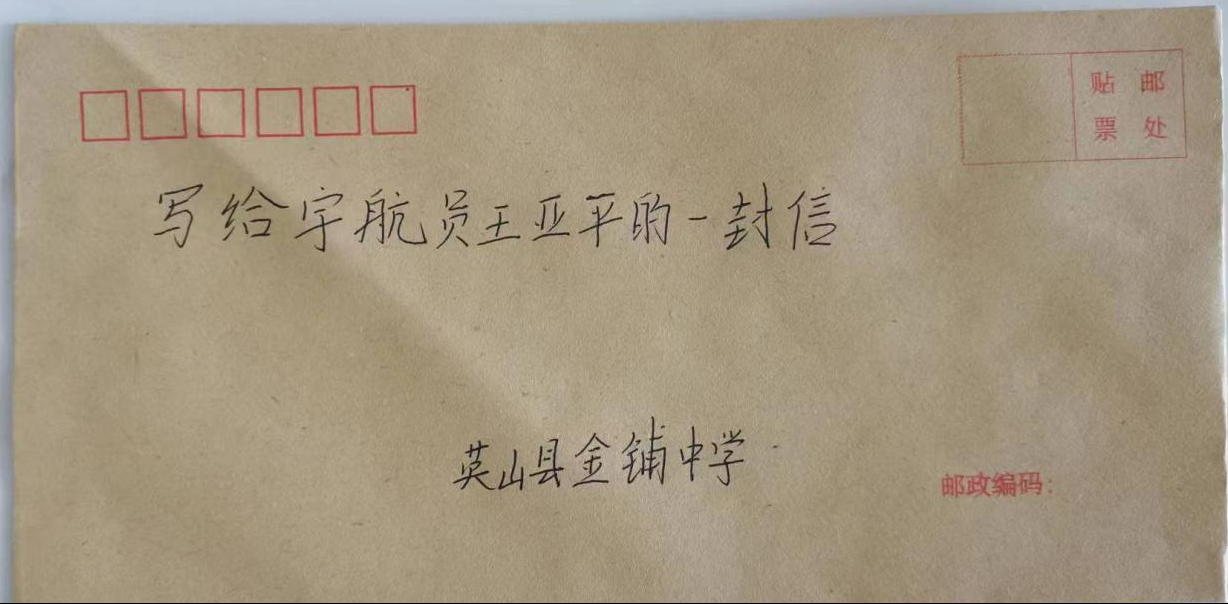 贴 邮
票 处
写给宇航员王亚平的一封信
英山县金铺中学
邮政编码: